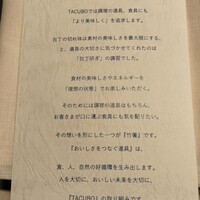 TACUBOでは調理の道具、食具にも
「より美味しく」を追求します。
包丁の切れ味は素材の美味しさを最大限にする、
と、道具の大切さに気づかせてくれたのは
「包丁研ぎ」の調習でした。
食材の美味しさやエネルギーを
「理想の状態」でお楽しみいただく、
そのためには調理の道具はもちろん、
お客さまが口に運ぶ食具にも気を配りたい。
その想いを形にした一つが「竹箸」です。
「おいしさをつなぐ道具」は、
食、人、自然の好循環を生み出します。
人を大切に、おいしい未来を大切に、
『TACUBO』の取り組みです。